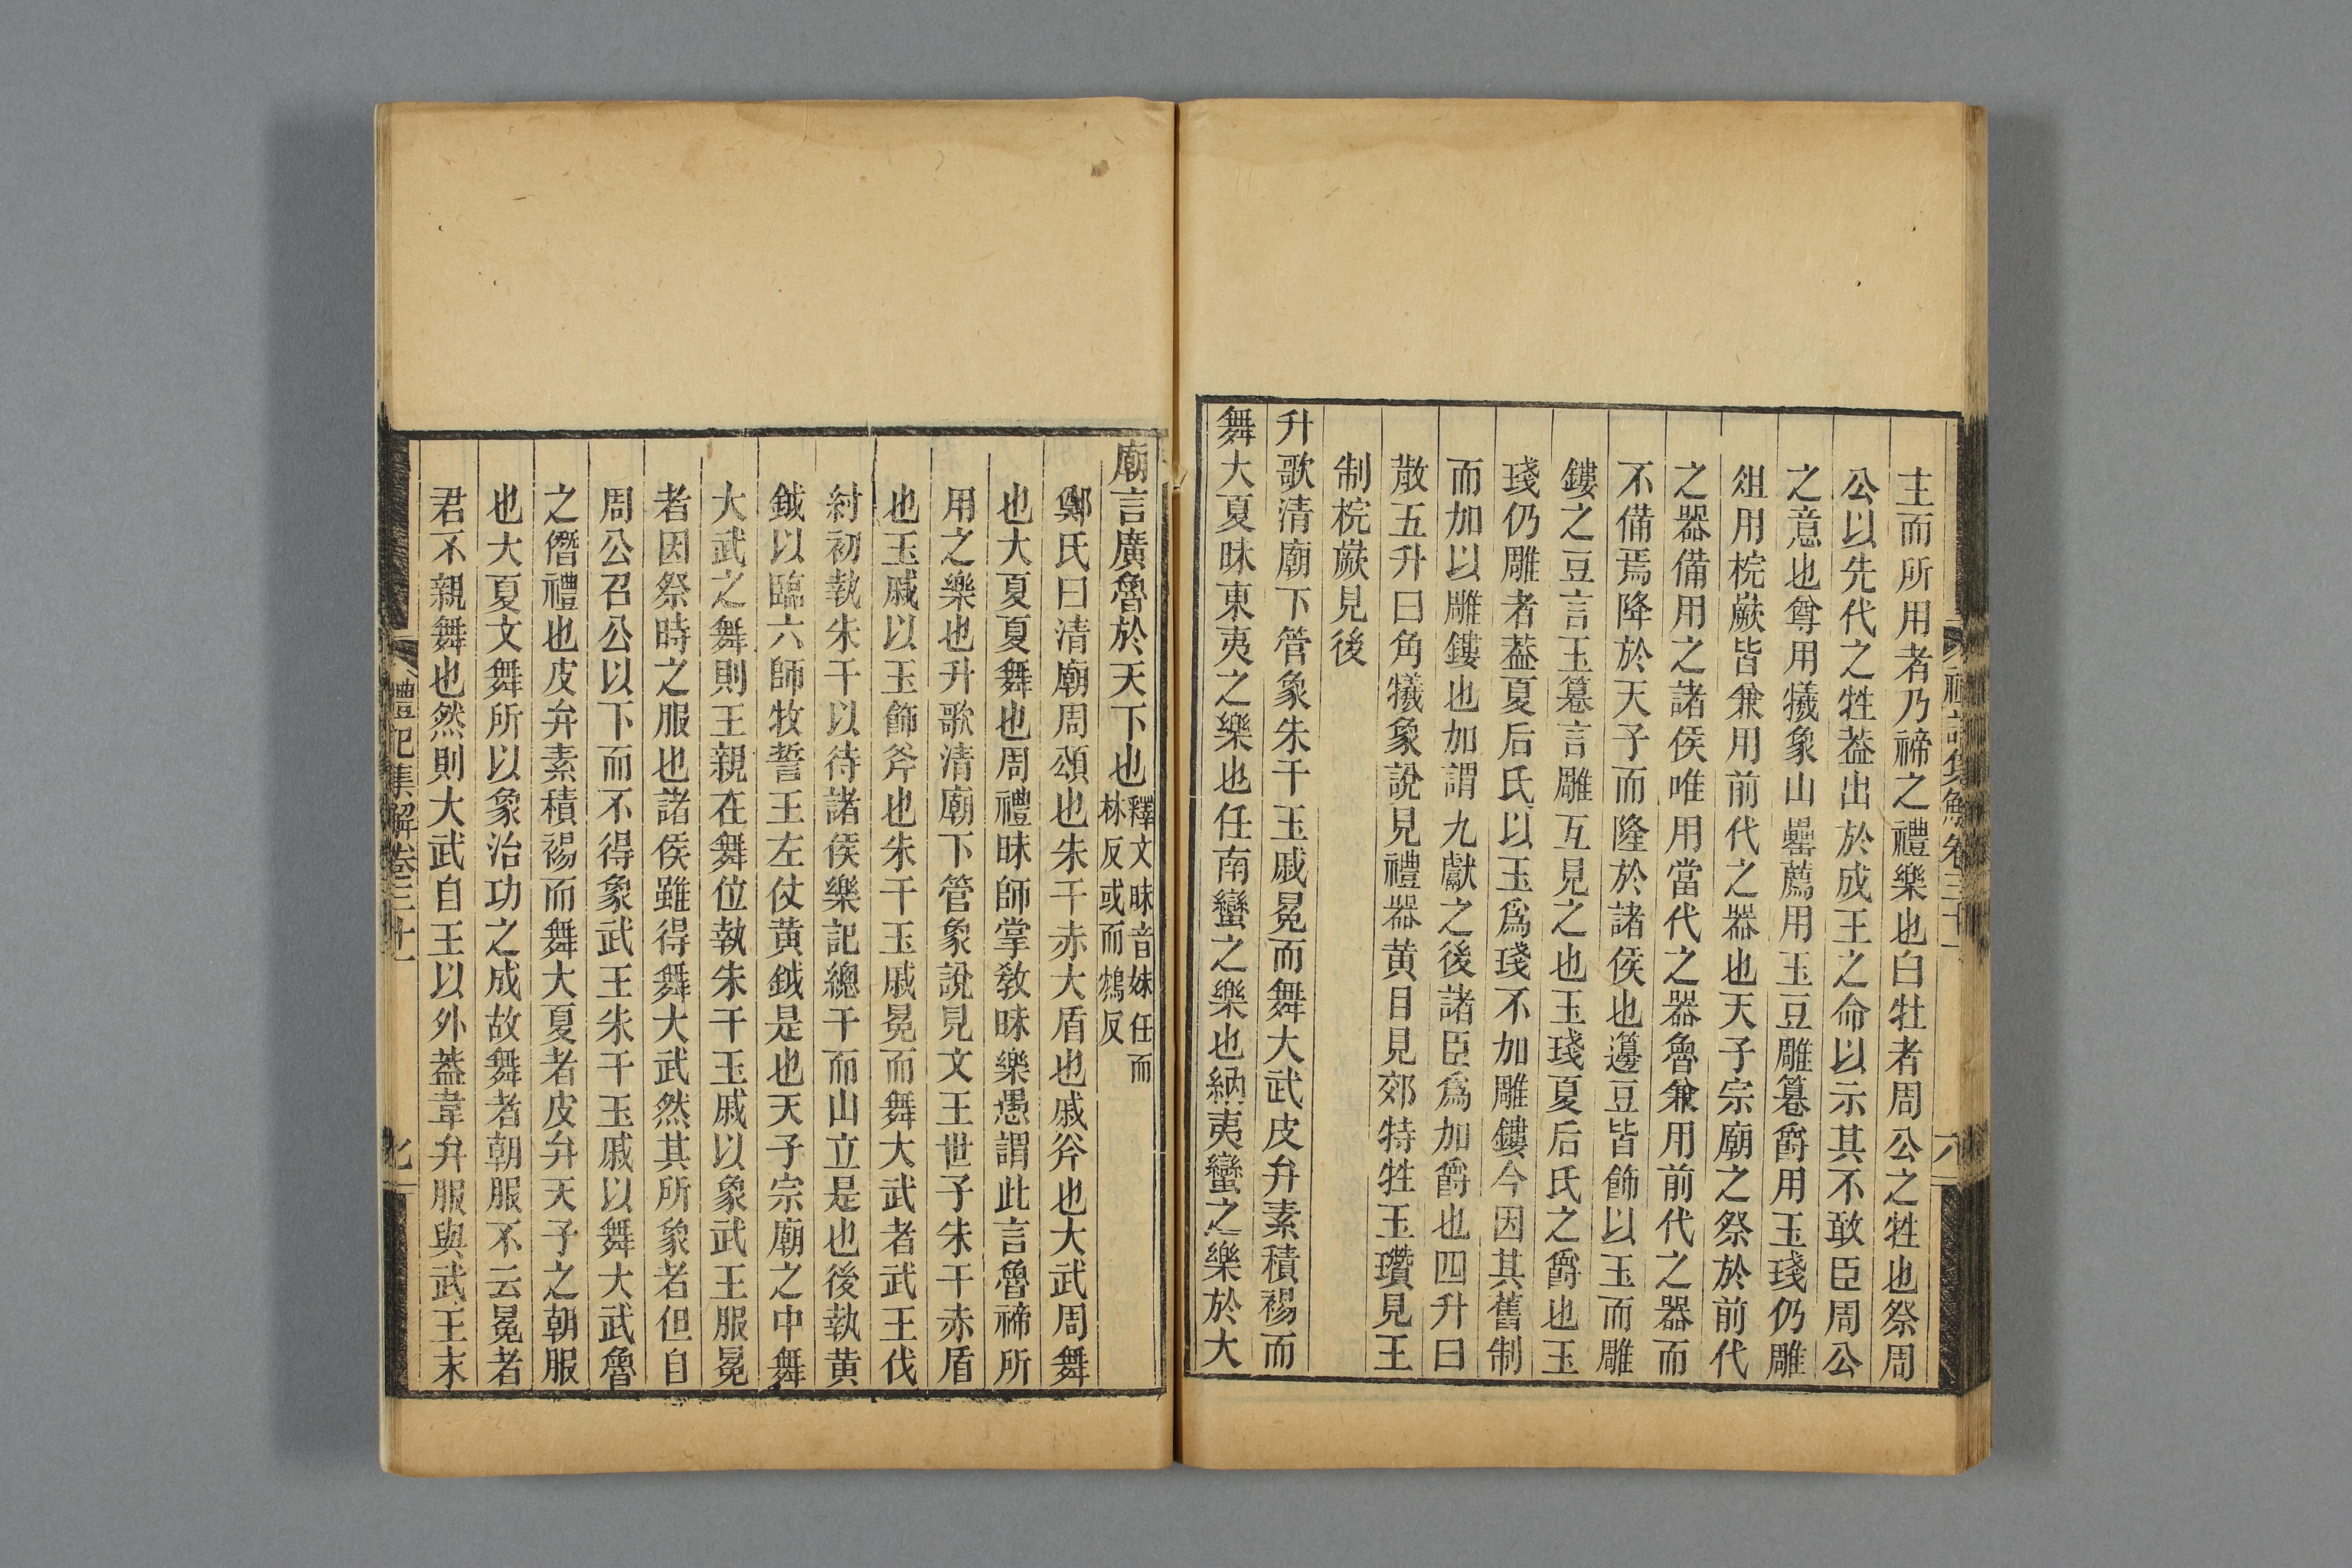 主而所用者乃禘之禮樂也白牡者周公之牲也祭周
公以先代之牲葢出於成王之命以示其不敢臣周公
之意也尊用犧象山罍薦用玉豆雕篹爵用玉琖仍雕
俎用梡嶡皆兼用前代之器也天子宗廟之祭於前代
之器備用之諸侯唯用當代之器魯兼用前代之器而
不備焉降於天子而隆於諸侯也籩豆皆飾以玉而雕
鏤之豆言玉篹言雕互見之也玉琖夏后氏之爵也玉
琖仍雕者葢夏后氏以玉爲琖不加雕鏤今因其舊制
而加以雕鏤也加謂九獻之後諸臣爲加爵也四升曰
散五升曰角犧象說見禮器黃目見郊特牲玉瓚見王
制梡嶡見後
升歌清廟下管象朱干玉戚冕而舞大武皮弁素積裼而
舞大夏昧東夷之樂也任南蠻之樂也納夷蠻之樂於大
禮記集解卷三十一
六
廟言廣魯於天下也釋文昧音妹任而
林反或而鴆反
鄭氏曰清廟周頌也朱干赤大盾也戚斧也大武周舞
也大夏夏舞也周禮昧師掌敎昧樂愚謂此言魯禘所
用之樂也升歌清廟下管象說見文王世子朱干赤盾
也玉戚以玉飾斧也朱干玉戚冕而舞大武者武王伐
紂初執朱干以待諸侯樂記總干而山立是也後執黃
鉞以臨六師牧誓王左仗黃鉞是也天子宗廟之中舞
大武之舞則王親在舞位執朱干玉戚以象武王服冕
者因祭時之服也諸侯雖得舞大武然其所象者但自
周公召公以下而不得象武王朱干玉戚以舞大武魯
之僭禮也皮弁素積裼而舞大夏者皮弁天子之朝服
也大夏文舞所以象治功之成故舞者朝服不云冕者
君不親舞也然則大武自王以外葢韋弁服與武王末
禮記集解卷三十一